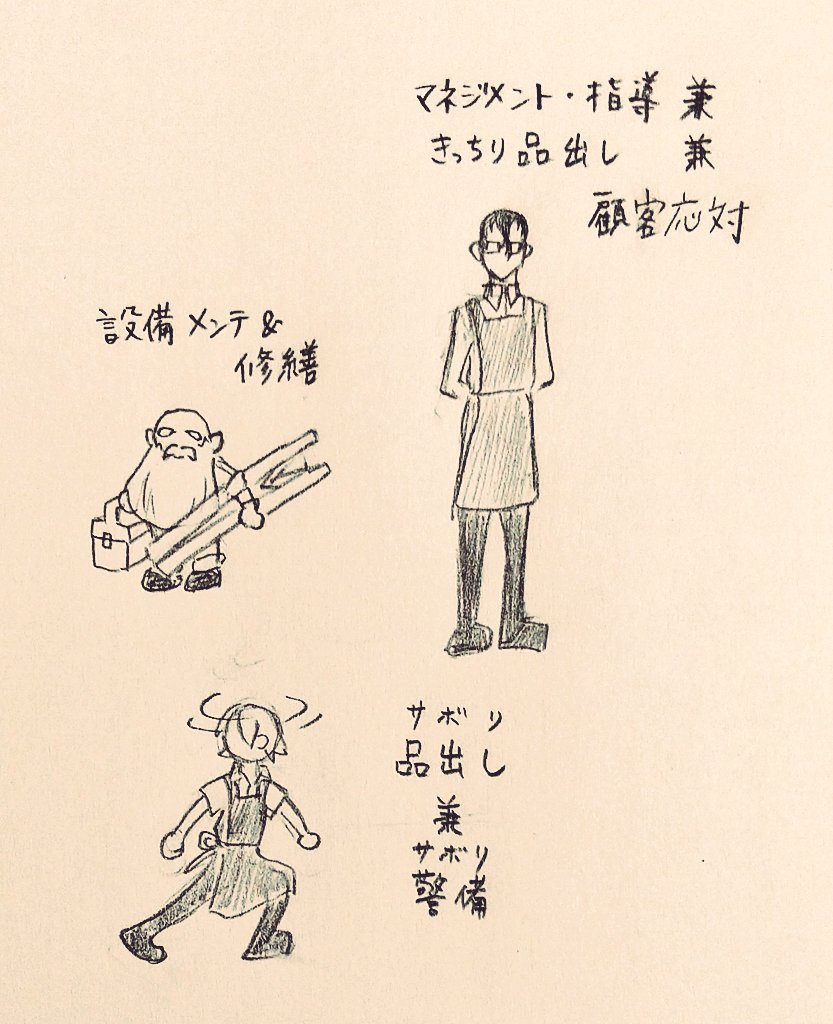 マネジメント・指導 兼
きっちり品出し 兼
顧客応対
設備メンテ&
修繕
サボり
品出し
兼
サボり
警備